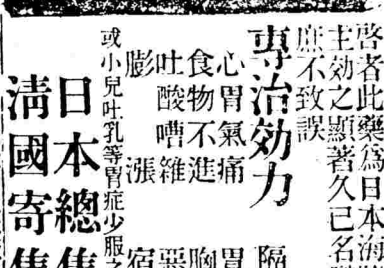 啓者此藥爲日本海
主効之顯著久已名
庶不致誤
專治効力
心胃氣痛
食物不進
吐酸嘈雜
膨漲
隔
胃
胸
惡
宿
或小兒吐乳等胃症少服之
日本總售
清國寄售